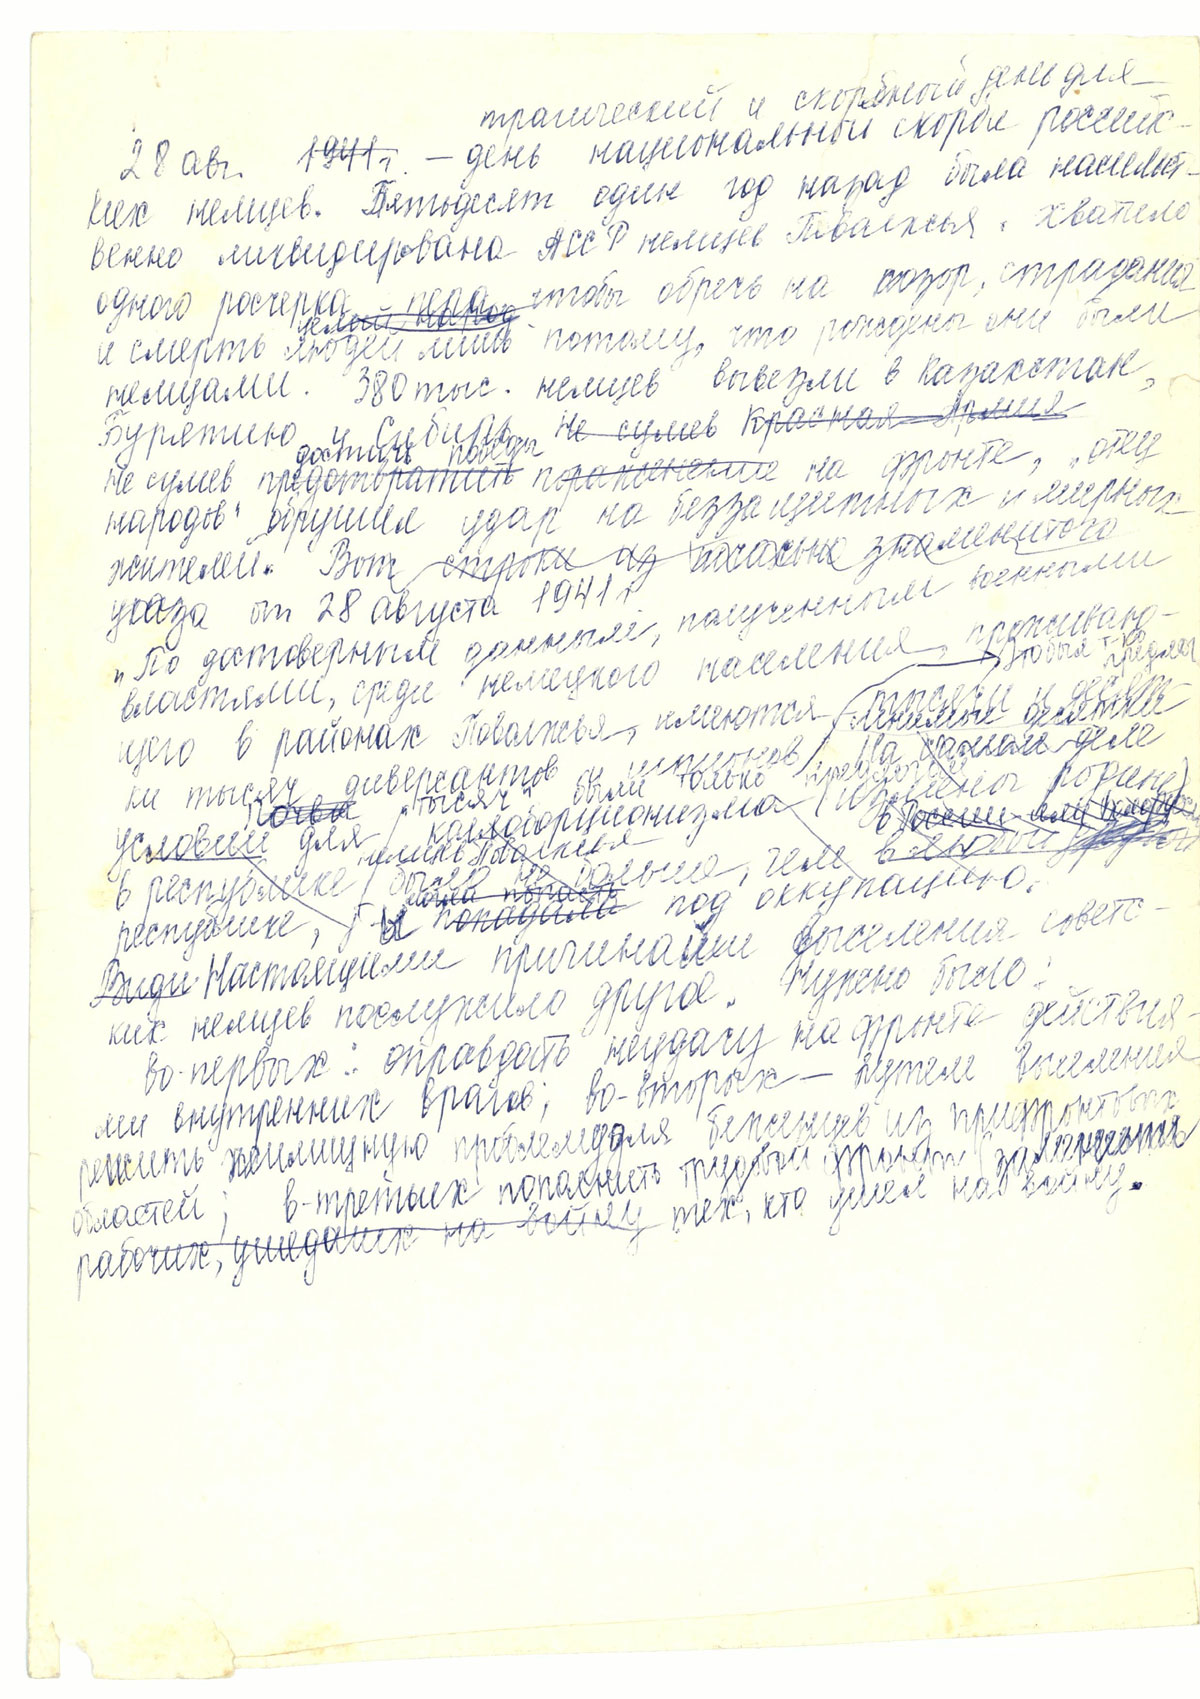 трагический и скорбный день для
28 авг. 1941г. – день национальной скорби российс-
ких немцев. Пятьдесят один год назад была насильст-
венно ликвидирована АССР немцев Поволжья. Хватило
одного росчерка пера чтобы обречь на позор, страдания
целый народ
и смерть людей лишь потому, что рождены они были
немцами. 380 тыс. немцев вывезли в Казахстан,
Бурятию и Сибирь. Не сумев Красная Армия
достичь победы
Не сумев предотвратить поражение на фронте, „отец
народов" обрушил удар на беззащитных и мирных
жителей. Вот строки из печально знаменитого
указа от 28 августа 1941г
„По достоверным данным, полученным военными
властями, среди немецкого населения, проживаю-
щего в районах Поволжья, имеются тысячи и десят-
предлог
мнимые десятки
ки тысяч диверсантов и шпионов На самом деле
Почва тысяч" были только предлогом
условий для коллоборционизма (измены родине)
немцев Поволжья в России или
в республике было не больше, чем в любой
могла попасть
республике, попадала под оккупацию.
Види Настоящими причинами выселения советс-
ких немцев послужило другое. Нужно было:
во-первых: оправдать неудачу на фронте действия-
ми внутренних врагов; во-вторых – путем выселения
решить жилищную проблему для беженцев из прифронтовых
областей; в-третьих пополнить трудовой фронт
рабочих, ушедших на войну тех, кто ушел на войну.